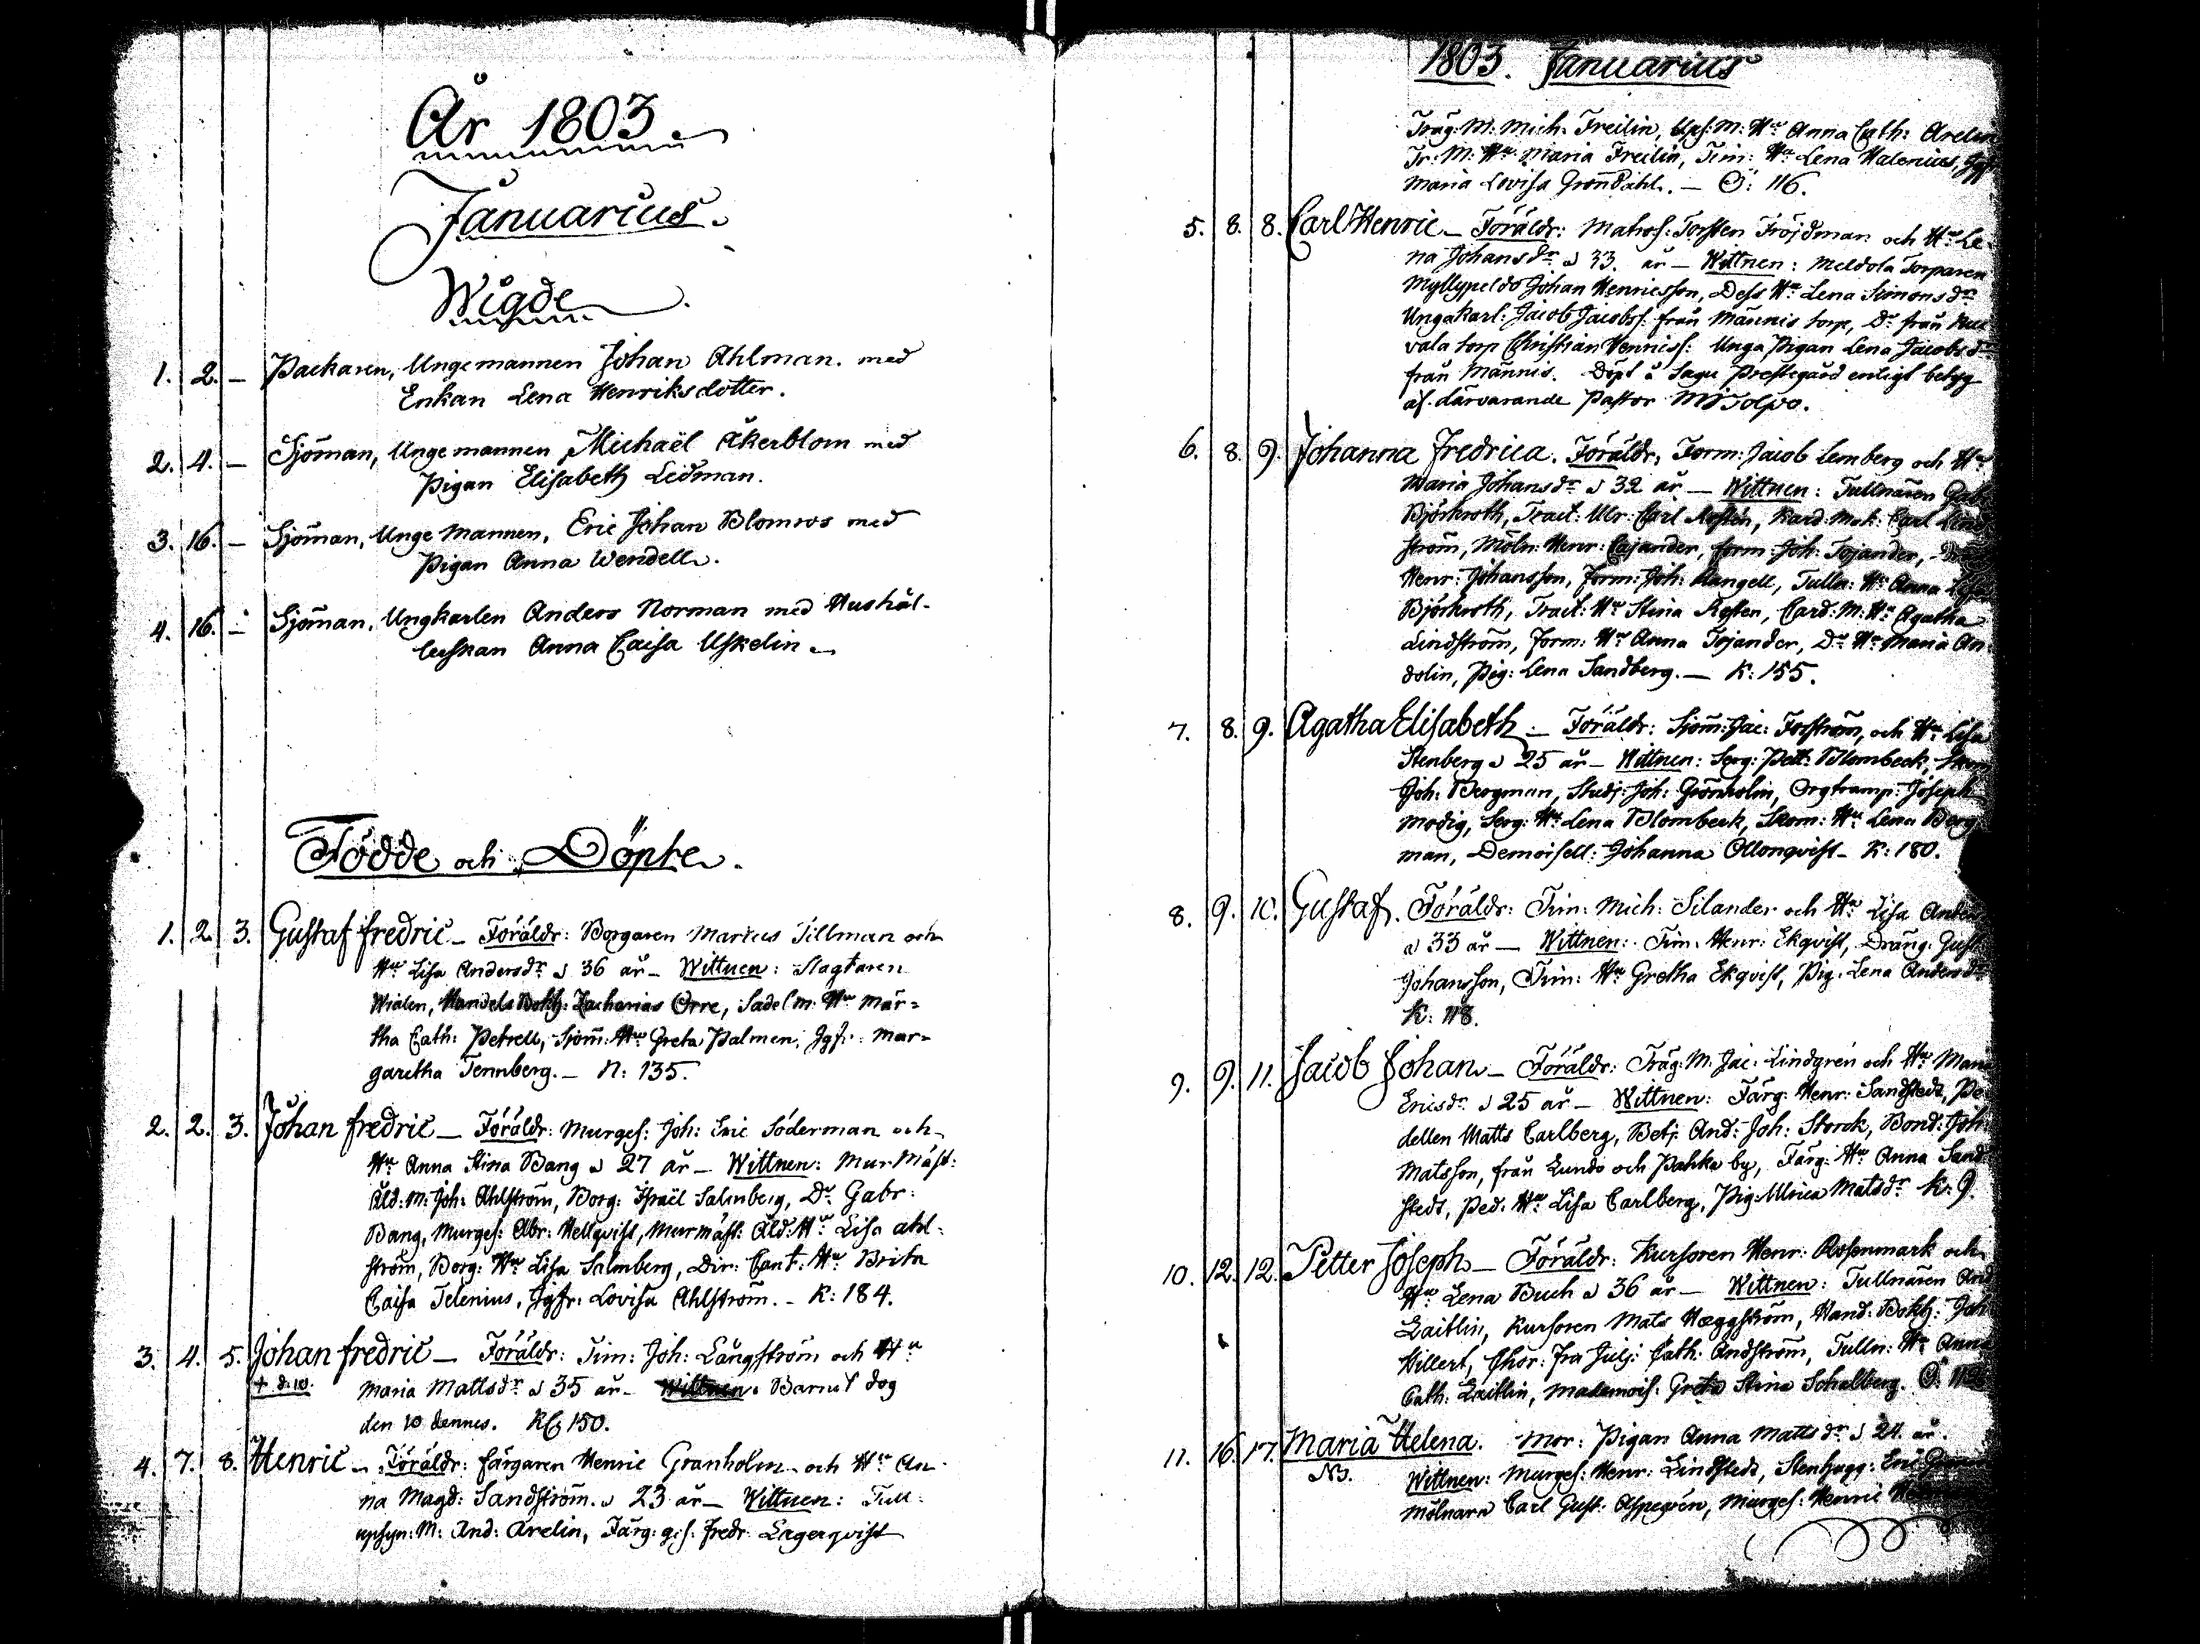 År 1803.
Januarius.
Wigde.
1. 2. — Packaren, Ungemannen Johan Ahlman. med
Enkan Lena Henriksdotter.
2. 4. — Sjöman, Ungemannen Michaël Åkerblom med
Pigan Elisabeth Ledman.
3. 16. — Sjöman, Unge mannen, Eric Johan Blomros med
Pigan Anna Wendell.
4. 16. — Sjöman, Ungkarlen Anders Norman med Hushål-
lerskan Anna Caisa Uskelin.
Födde och Döpte.
1. 2. 3. Gustaf Fredric — Föräldr: Borgaren Marcus Tillman och
Hu Lisa Andersdr 36 år — Wittnen: Slagtaren
Wialen, Handels Bokh: Zacharias Orre, Sadelm: Hu Mär=
tha Cath: Petrell, Sjöm: Hu Greta Palmen, Jgfr: Mar=
garetha Tennberg. — N: 135.
2. 2. 3. Johan Fredric — Föräldr: Murges: Joh: Eric Söderman och
Hu Anna Stina Bang 27 år — Wittnen: Mur Mäst:
Åld: M: Joh: Ahlström, Borg: Israël Salmberg, Do Gabr:
Bang, Murges: Abr: Hellqvist, Murmäst: Åld: Hu Lisa Ahl-
ström, Borg: Hu Lisa Salmberg, Dir: Cant: Hu Brita
Caisa Telenius, Jgfr: Lovisa Ahlström. - K: 184.
3. 4. 5. Johan Fredric — Föräldr: Tim: Joh: Långström och Hu
+ d. 10. Maria Mattsdr 35 år — Wittnen: Barnet dog
den 10 dennes. K 150.
4. 7. 8. Henric — Föräldr: Färgaren Henric Granholm och Hu An-
na Magd: Sandström. 23 år — Wittnen: Tull:
upsyn: M: And: Arelin, Färg: ges: Fredr: Lagerqvist
1803. Januarius
Träg: M: Mich: Freilin, Ups: M: Hu Anna Cath: Arelin
Tr: M: Hu Maria Freilin, Tim: Hu Lena Walenius, Jgfr
Maria Lovisa Gröndahl. — Ö: 116.
5. 8. 8. Carl Henric — Föräldr: Matros: Torsten Fröjdman och Hu Le-
na Johansdr 33 år — Wittnen: Meldola Torparen
Myllypeldo Johan Henricsson, Dess Hu Lena Simonsdr
Ungakarl: Jacob Jacobss: från Männis torp, Do från
vala torp Christian Henricss: Unga Pigan Lena Jacobsdr
från Männis. Döpt i Sagu Prestegård enligt betyg
af därvarande Pastor
6. 8. 9. Johanna Fredrica. Föräldr: Form: Jacob Lemberg och Hu
Maria Johansdr 32 år — Wittnen: Tullnären Gab:
Björkroth, Tract: Ulr: Carl Resten, Kard: mak: Carl Lind-
ström, Möln: Henr: Cajander, Form: Joh: Tojander,
Henr: Johansson, Form: Joh: Rangell, Tulln: Hu Anna Lisa
Björkroth, Tract: Hu Stina Resten, Card: M: Hu Agatha
Lindström, Form: Hu Anna Tojander, Do Hu Maria An-
dolin, Pig: Lena Sandberg. — K: 155.
7. 8. 9. Agatha Elisabeth — Föräldr: Sjöm: Jac: Forström, och Hu Lisa
Stenberg 25 år — Wittnen: Serg: Pett: Blombeck, Skom
Joh: Bergman, Studj: Joh: Grönholm, Orgtramp: Joseph
Modig, Serg: Hu Lena Blombeck, Skom: Hu Lena Berg-
man, Demoisell: Johanna Ollonqvist — K: 180.
8. 9. 10. Gustaf. Föräldr: Tim: Mich: Silander och Hu Lisa Anders
33 år — Wittnen: Tim: Henr: Ekqvist, Dräng: Gust:
Johansson, Tim: Hu Gretha Ekqvist, Pig: Lena Andersdr
K: 118.
9. 9. 11. Jacob Johan — Föräldr: Träg: M: Jac: Lindgren och Hu Maria
Ericsdr 25 år — Wittnen: Färg: Henr: Sandstedt, Pe-
dellen Matts Carlberg, Betj: And: Joh: Storck, Bond: Joh:
Matsson, från Lundo och Pahka by, Färg: Hu Anna Sand-
stedt, Ped: Hu Lisa Carlberg, Pig: Ulrica Matsdr K: 9.
10. 12. 12. Petter Joseph — Föräldr: Kursoren Henr: Rosenmark och
Hu Lena Buch 36 år — Wittnen: Tullnären And
Laitlin, Kursoren Mats Hæggström, Hand: Bokh: Joh:
Hillert, Chor: Fru Julj: Cath: Andström, Tulln: Hu Anna
Cath: Laitlin, Mademois: Greta Stina Schalberg.
11. 16. 17. Maria Helena. Mor: Pigan Anna Mattsdr 24 år.
NB. Wittnen: Murges: Henr: Lindstedt, Stenhugg: Eric
Mölnare Carl Gust: Aspegrén, Murges: Henric